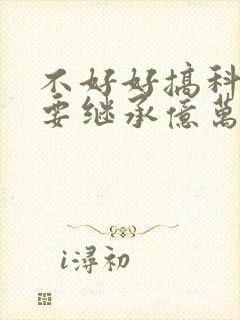 不好好搞科
要继承億萬
i潯初